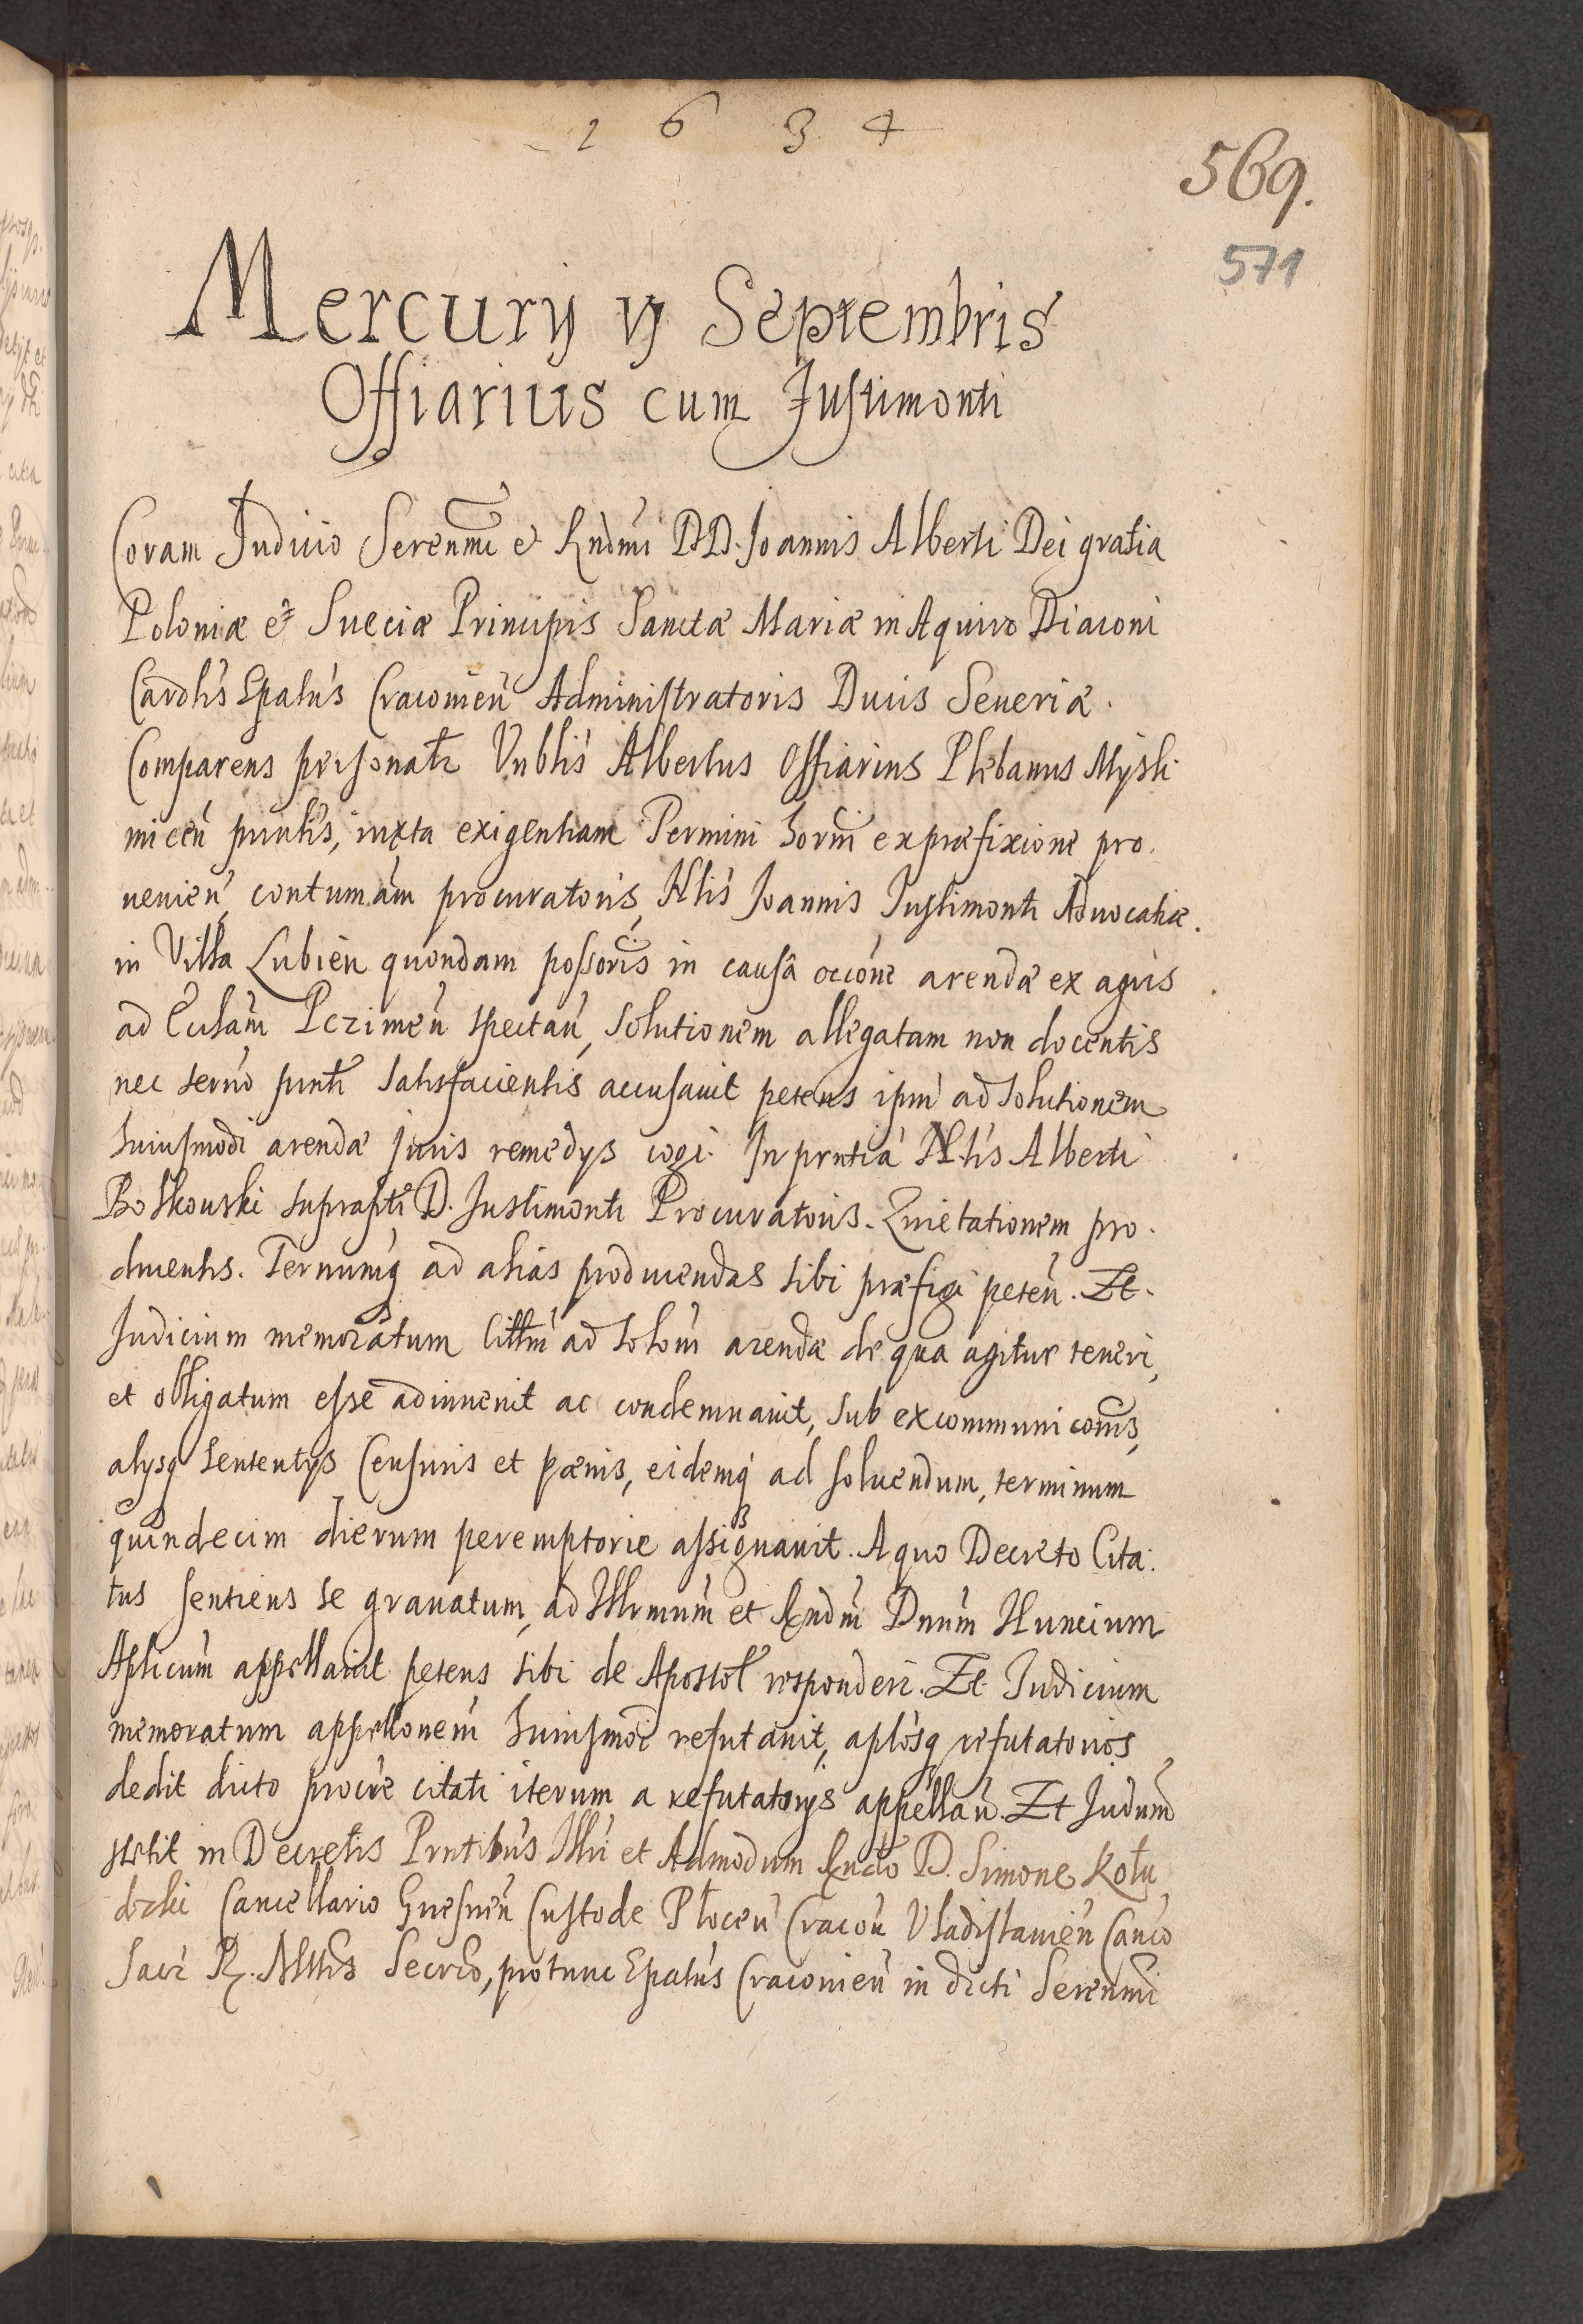 1 6 3 4
569.
571
Mercurÿ vj Septembris
Offiarius cum Justimonti
Coram Judicio Serenmi et Rndmi DD. Joannis Alberti Dei gratia
Poloniæ et Sueciæ Principis Sanctæ Mariæ in Aquiro Diaconi
Cardlis Epatus Cracovien Administratoris Ducis Seueriæ.
Comparens personatr Vnblis Albertus Offiarius Plebanus Mysli
micen pntis, iuxta exigentiam Termini horni ex præfixione pro
uenien, contumam procuratoris, Nlis Joannis Justimonti Aduocatiæ
in Villa Lubien quondam possoris in causa occone arendæ ex agris
ad Ecclam Pczimen spectan, solutionem allegatam non docentis
nec termo pnti satisfacientis accusauit petens ipm ad solutionem
huiusmodi arendæ juris remedys cogi. In pntia Nlis Alberti
Boskouski suprapti D. Justimonti Procuratoris. Quietationem pro
ducentis. Terminumq ad alias producendas sibi præfigi peten. Et
Judicium memoratum Cittm ad solom arendæ de qua agitur teneri,
et obligatum esse adinuenit ac condemnauit, sub excommuniconis,
alysq sententys Censuris et pœnis, eidemq ad soluendum, terminum
quindecim dierum peremptorie assignauit. A quo Decreto Cita
tus sentiens se grauatum, ad Illrmum et Rndm Dnum Nuncium
Aplicum appellauit petens sibi de Apostol responderi. Et Judicium
memoratum appellonem huiusmoi refutauit, aplosq refutatorios
dedit dicto procre citati iterum a refutatorijs appellan. Et Judum
stetit in Decretis Pntibus Illri et Admodum Rndo D. Simone Kołu
dzki Cancellario Gnesnen Custode Płocen Cracou Vladislauien Canco
Sacr R. Mttis Secrio, pro tunc Epatus Cracouien in dicti Serenmi